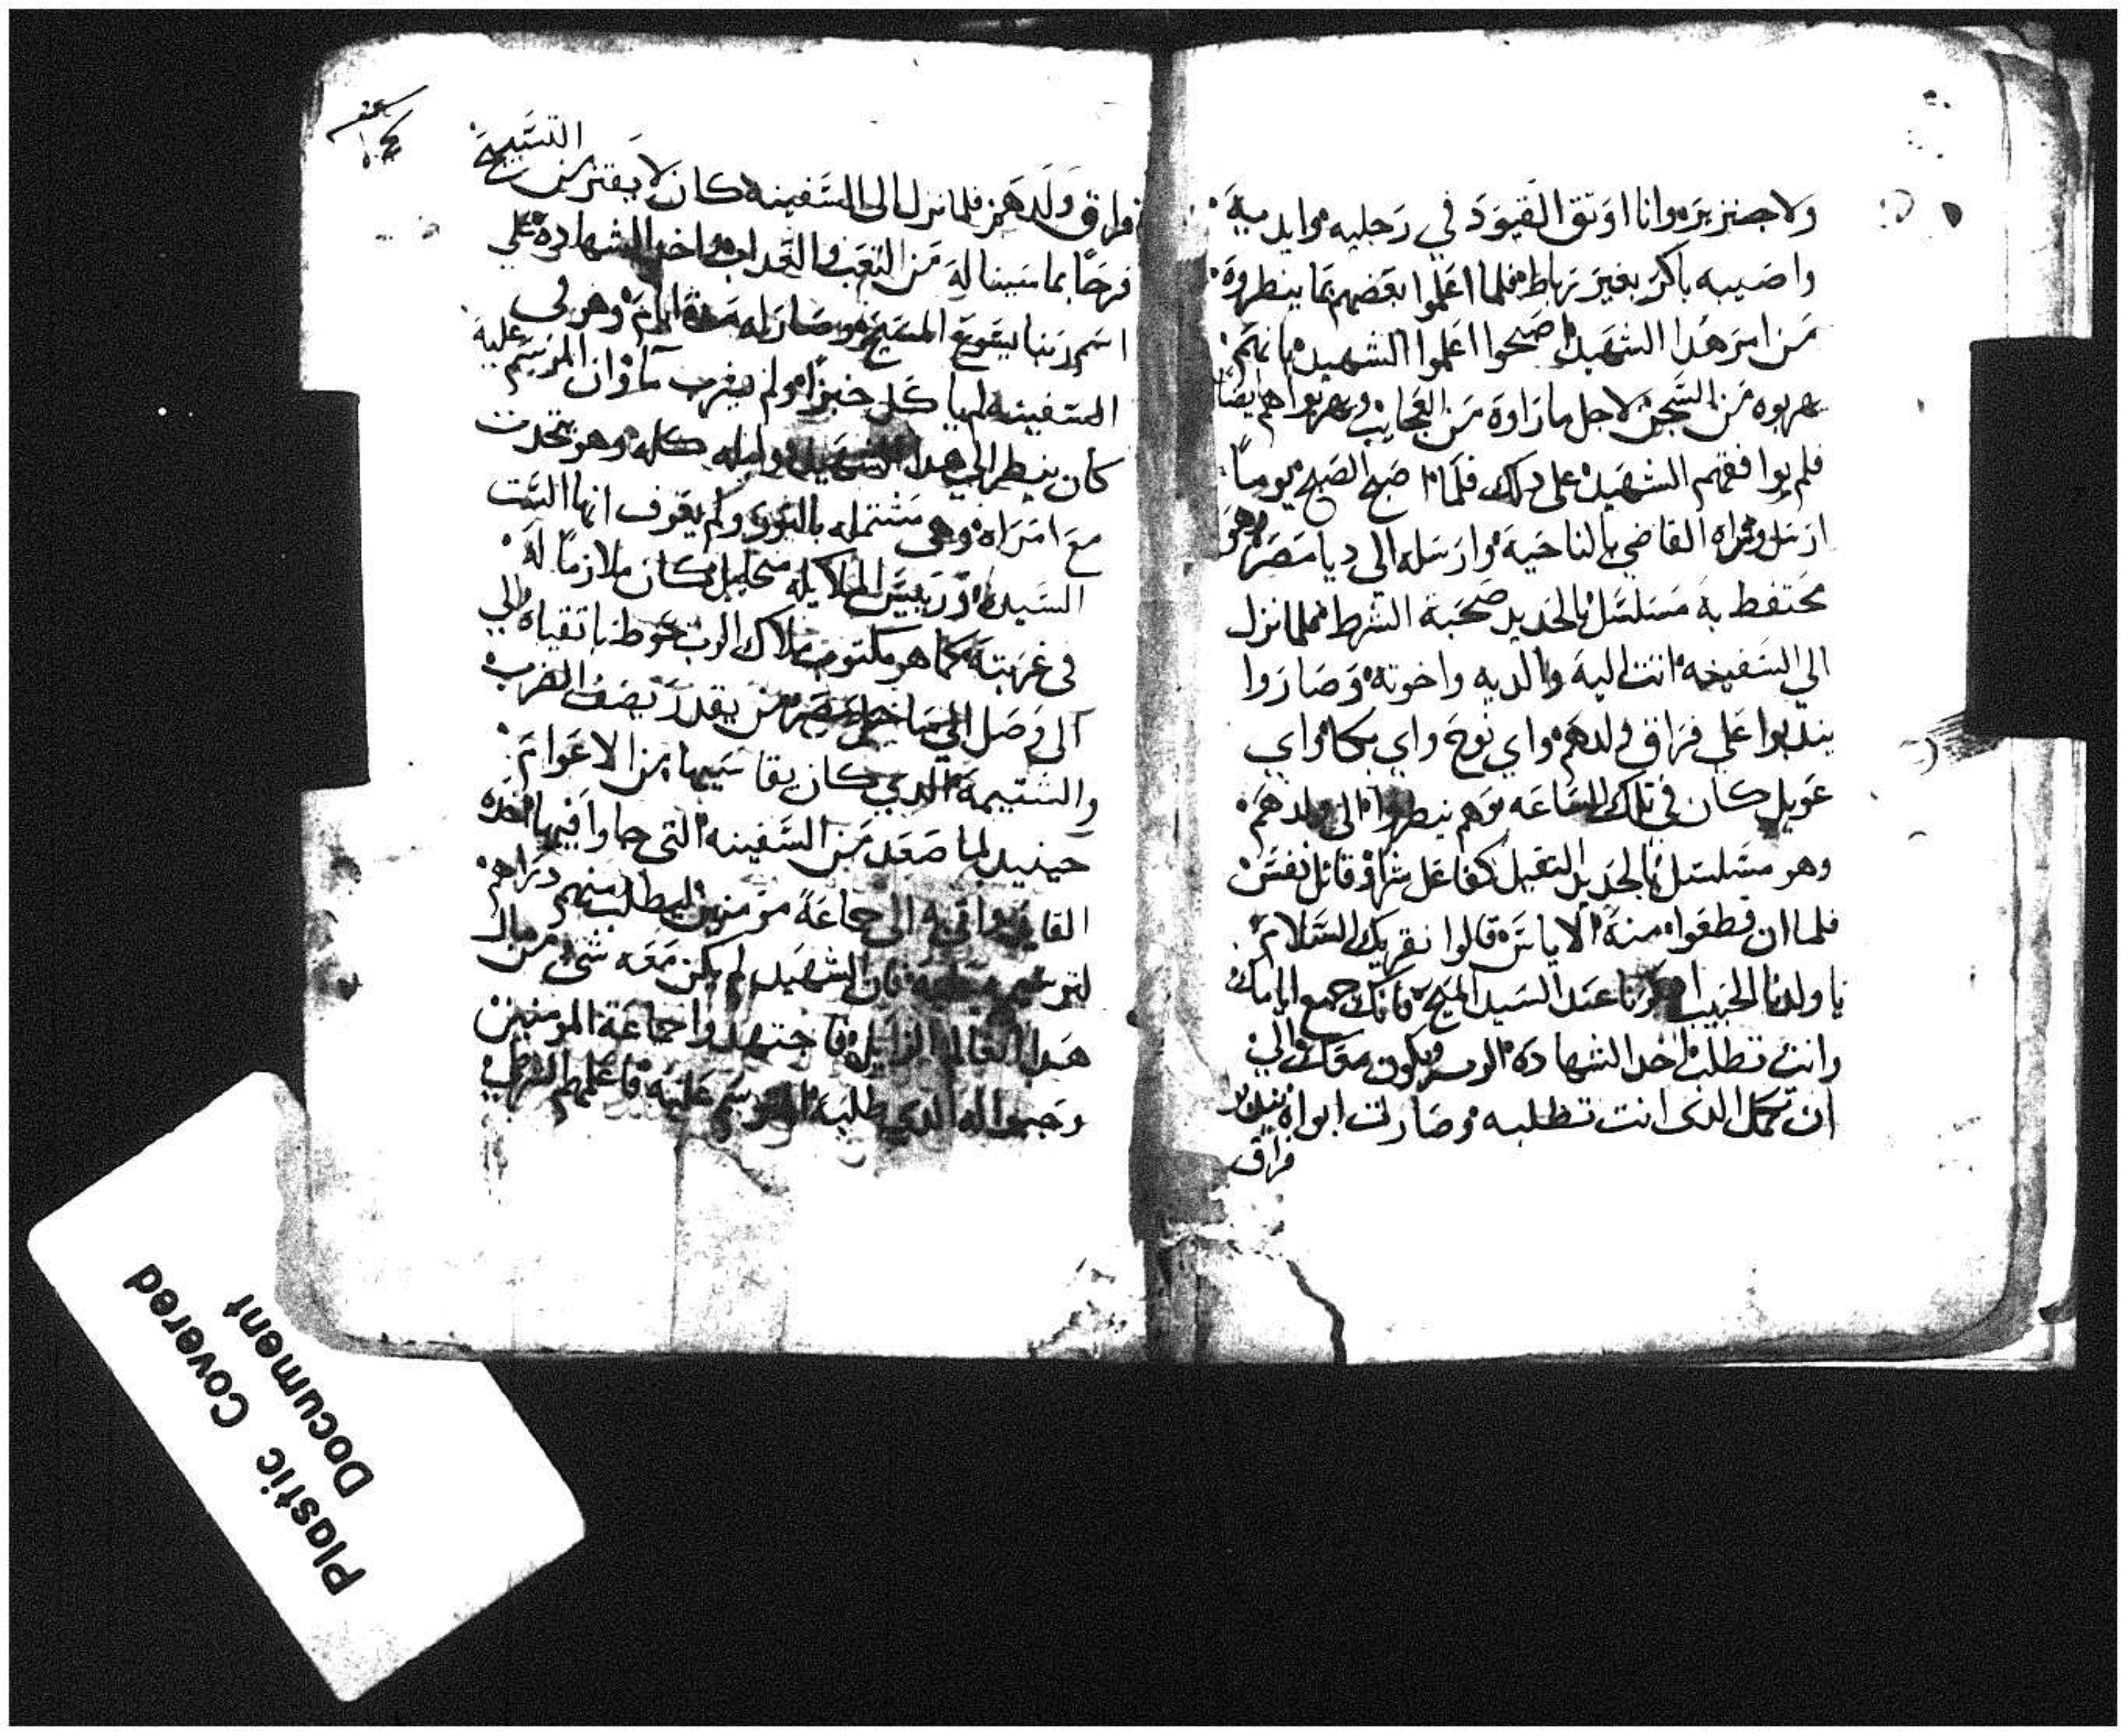 ولا جنزير وانا اوتق القيود في رجليه وايديه
واصيبه باكر بغير رباط فلما اعلموا بعضهم بما ينطروه
من امر هدا الشهيد اصبحوا اعلموا الشهيد بانهم
يهربوه من السجن لاجل ما راوه من العجايب ويهربوا هم ايضا
فلم يوافقهم الشهيد على دلك فلما اصبح الصبح يوما
ارسل وراه القاضي بالناحية وارسله الي ديا مصر وهو
محتفط به مسلسل بالحديد صحبة الشرط فلما نزل
الي السفينه اتت اليه والديه واخوته وصاروا
يندبوا علي فراق ولدهم واي نوح واي بكا واي
عويل كان في تلك الساعه وهم ينطروا الى ولدهم
وهو مسلسل بالحديد التقيل كفاعل شرا وقاتل نفس
فلما ان قطعوا منه الاياس قالوا نقريك السلام
يا ولدنا الحبيب ادكرنا عند السيد المسيح فانك جميع ايامك
وانت تطلب اخد الشهاده الرب يكون معك الي
ان تكمل الدى انت تطلبه وصارت ابواه
فراق
التسبيح
فراق ولدهم فلما نزل الى السفينه كان لا يفتر من
فرحا بما سيناله من التعب والعداب واخد الشهاده علي
اسم ربنا يسوع المسيح وصار له مدة ايام وهو في
السفينه لم ياكل خبزا ولم يشرب ما وان المرسم عليه
كان ينطر الي هدا الشهيد وليله كله وهو يتحدت
مع امراه وهي مشتمله بالنور ولم يعرف انها الست
السيده وريس الملايكه ميخاييل كان ملازما له
في غربته كما هو مكتوب ملاك الرب يحوط باتقياه والي
الى وصل الي ساحل مصر من يقدر يصف الضرب
والشتيمة الدي كان يقاسيها من الاعوام
حينيد لما صعد من السفينه التى جاوا فيها اخده
القايد واتي به الى جماعة مومنين ليطلب منهم دراهم
فان الشهيد لم يكن معه شى من مال
هدا العالم الزايل فاجتهدوا جماعة المومنين
وجبوا له الدي طلبه المرسم عليه فاعلمهم الشرطي
Plastic Covered
Document